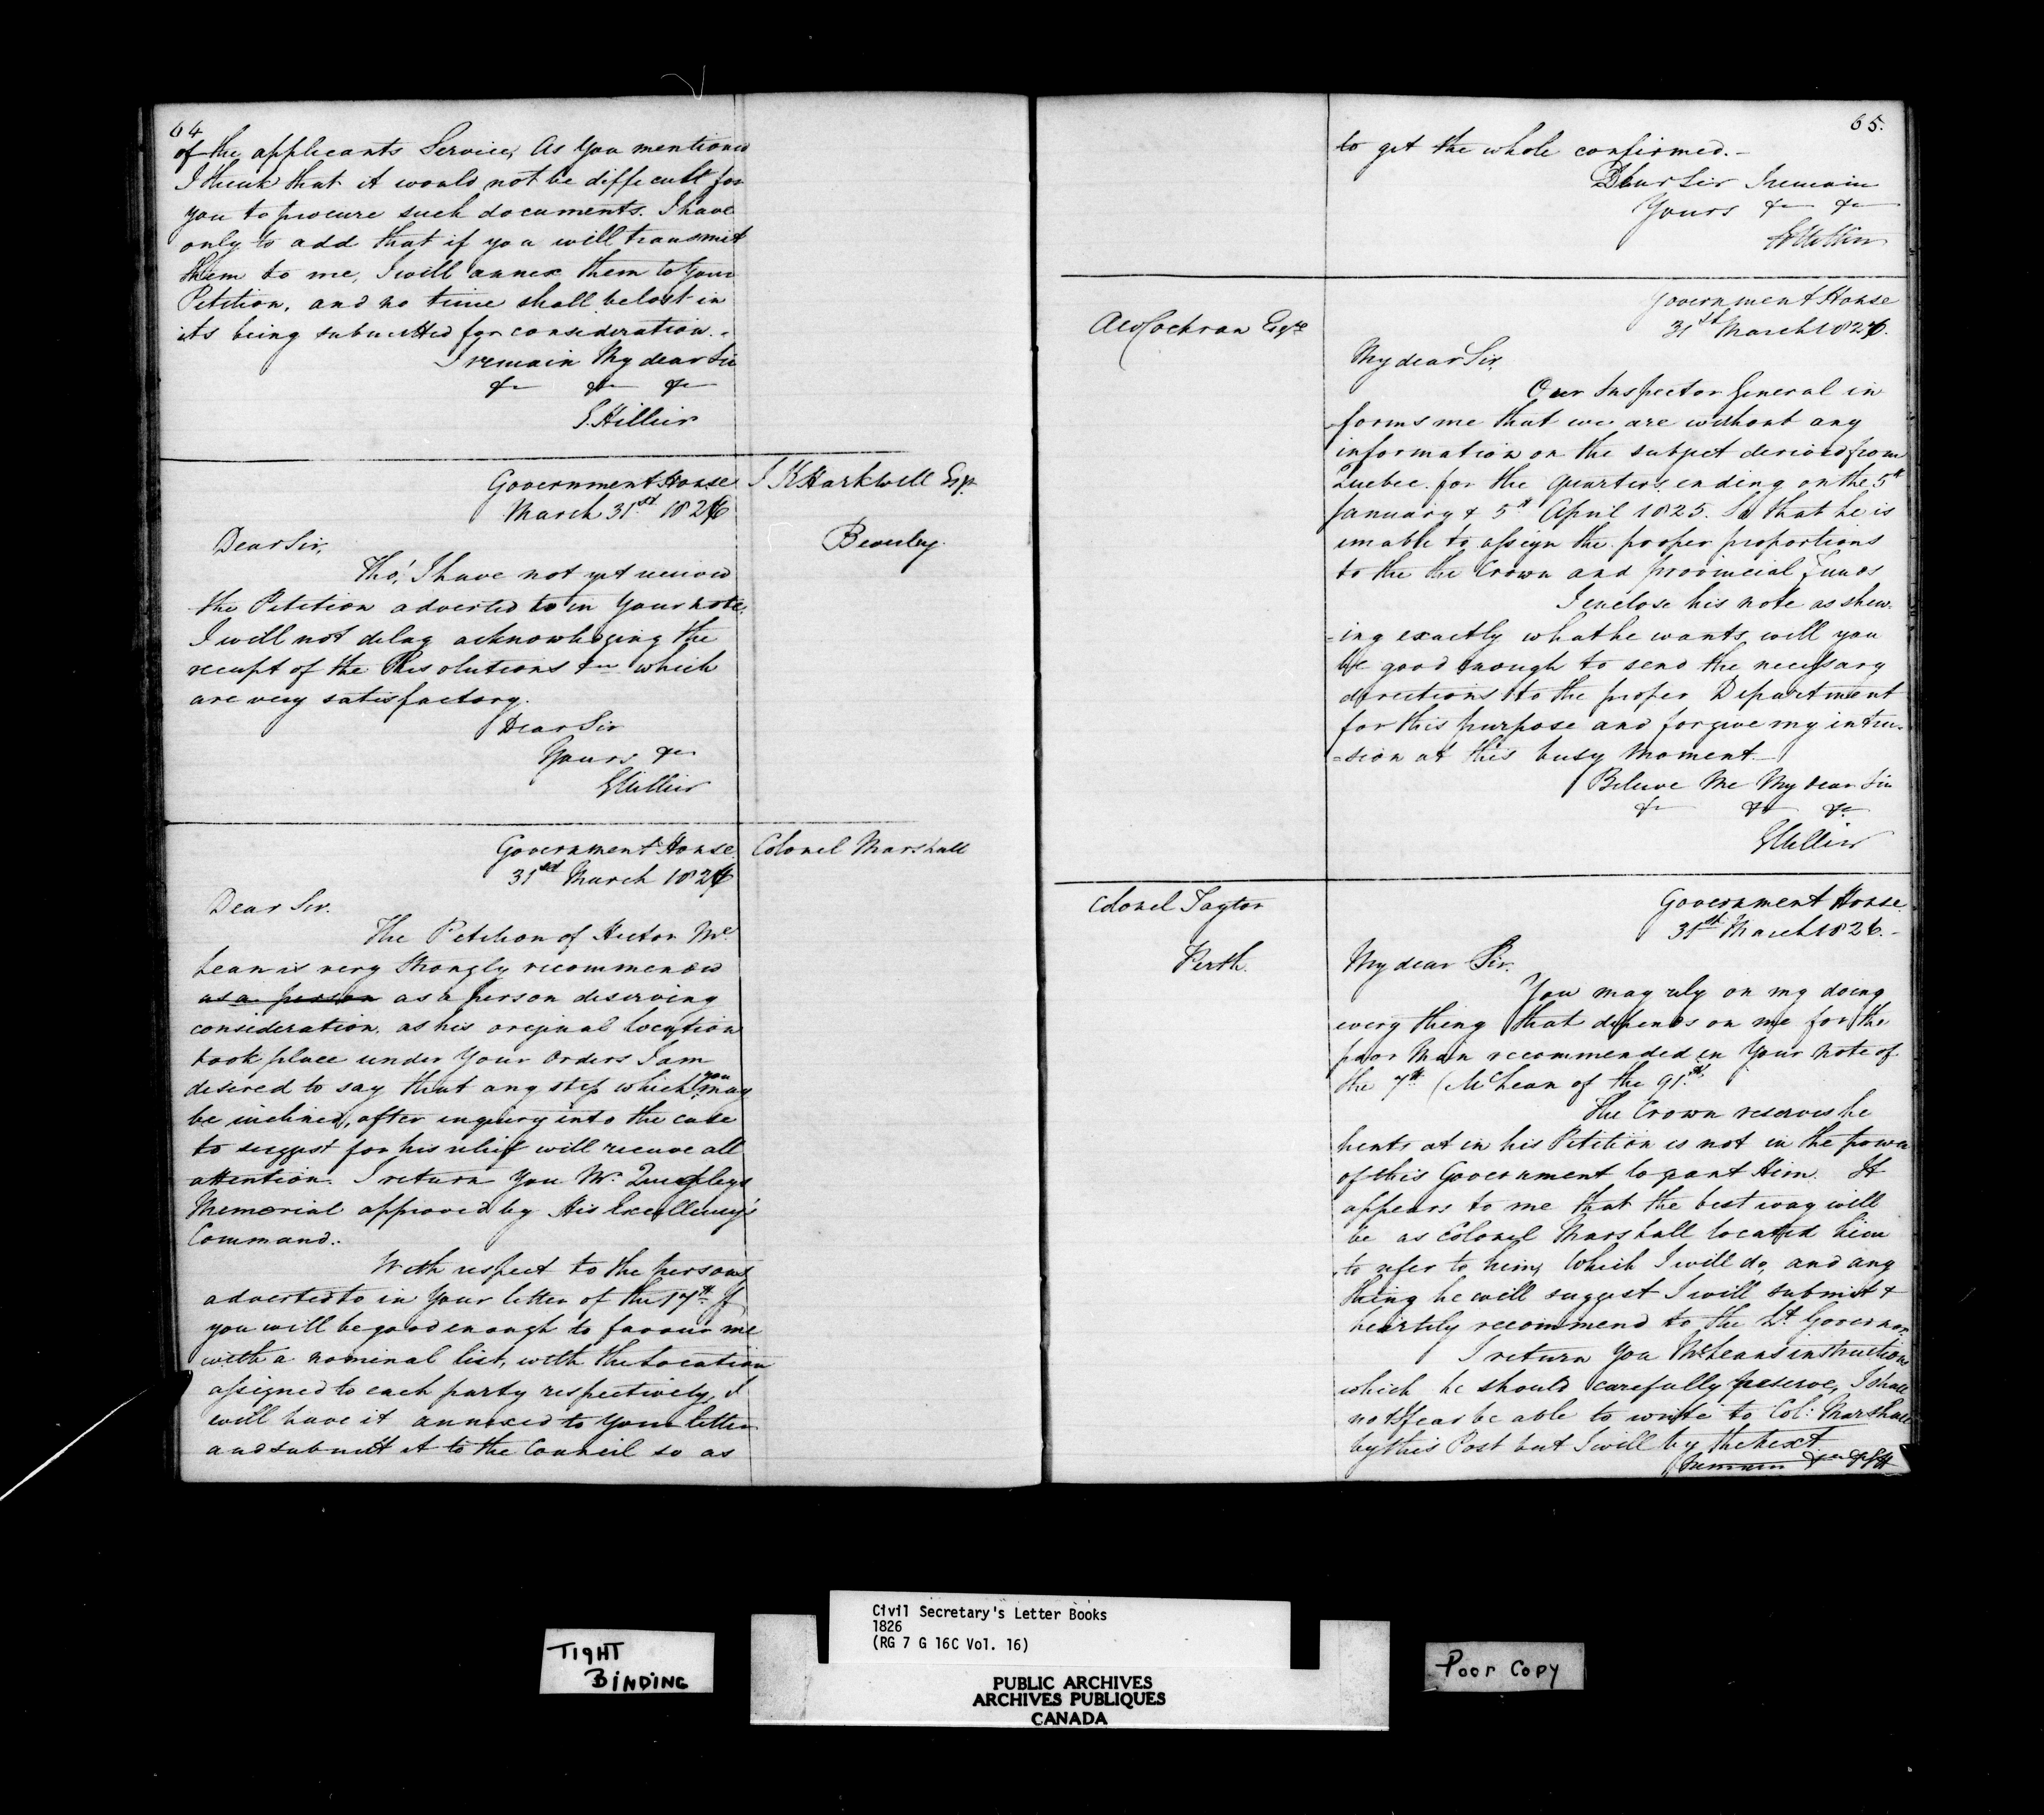 64
of the applicants Service, As you mentioned
I think that it would not be difficult for
you to procure such documents. I have
only to add that if you will transmit
them to me, I will annex them to Your
Petition, and no time shall be lost in
its being submitted for consideration. -
I remain My dear Sir
&c &c &c
G. Hillier
Government House
March 31st 1826
J K Hartwell Esqr
Beverley
Dear Sir,
Tho' I have not yet received
the Petition adverted to in Your note,
I will not delay acknowledging the
receipt of the Resolutions &c which
are very satisfactory.
Dear Sir
Yours &c
G Hillier
Government House
31st March 1826
Colonel Marshall
Dear Sir.
The Petition of Hector Mc
Lean is very Strongly recommended
as a person as a person deserving
consideration. as his original location
took place under Your Orders I am
desired to say that any step which you may
be inclined, after inquiry into the case
to suggest for his relief will receive all
attention. I return You Mr.
Memorial approved by His Excellency's
Command..
With respect to the persons
adverted to in Your letter of the 17th If
you will be good enough to favour me
with a nominal list, with the Location
assigned to each party respectively, I
will have it annexed to Your letter
and submitt it to the Council so as
65.
to get the whole confirmed. -
Dear Sir I remain
Yours &c &c
G Hillier
Government House
31st March 1826.
A W Cochran Esqre
My dear Sir,
Our Inspector General in
forms me that we are without any
information on the subject derived from
Quebec. for the quarters ending on the 5th
January & 5th April 1825. So that he is
unable to assign the proper proportions
to the the Crown and provincial Funds
I enclose his note as shew-
=ing exactly what he wants, will you
be good enough to send the necessary
directions to the proper Department
for this purpose and forgive my intru-
=sion at this busy moment. -
Believe Me My dear Sir
&c &c &c
G Hillier
Colonel Taylor
Perth.
Government House.
31st March 1826. -
My dear Sir.
You may rely on my doing
every thing that depends on me for the
poor Man recommended in Your Note of
the 7th (McLean of the 91st.
The Crown reserves he
hents at in his Petition is not in the power
of this Government to grant Him. It
appears to me that the best way will
be as Colonel Marshall located him
to refer to him, Which I will do, and any
thing he will suggest I will submit &
heartily recommend to the Lt. Governor.
I return You McLeans instructions
which he should carefully preserve, I shall
not I fear be able to write to Col: Marshall
by this Post but I will by the next
I remain &c &c GH
Civil Secretary's Letter Books
1826
(RG 7 G 16C Vol. 16)
TIGHT
BINDING
PUBLIC ARCHIVES
ARCHIVES PUBLIQUES
CANADA
Poor Copy